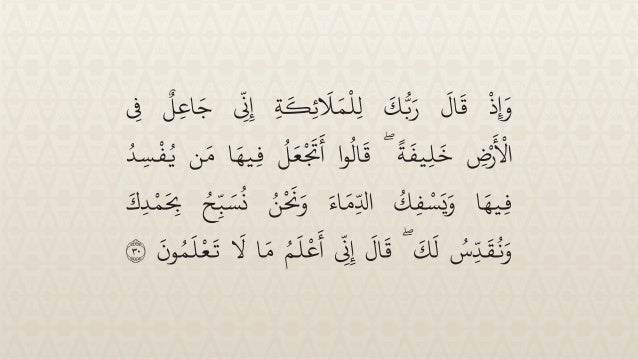 وَإِذْ قَالَ رَبُّكَ لِلْمَلَائِكَةِ إِنِّي جَاعِلٌ فِي
الْأَرْضِ خَلِيفَةً ۖ قَالُوا أَتَجْعَلُ فِيهَا مَن يُفْسِدُ
فِيهَا وَيَسْفِكُ الدِّمَاءَ وَنَحْنُ نُسَبِّحُ بِحَمْدِكَ
وَنُقَدِّسُ لَكَ ۖ قَالَ إِنِّي أَعْلَمُ مَا لَا تَعْلَمُونَ ٣٠